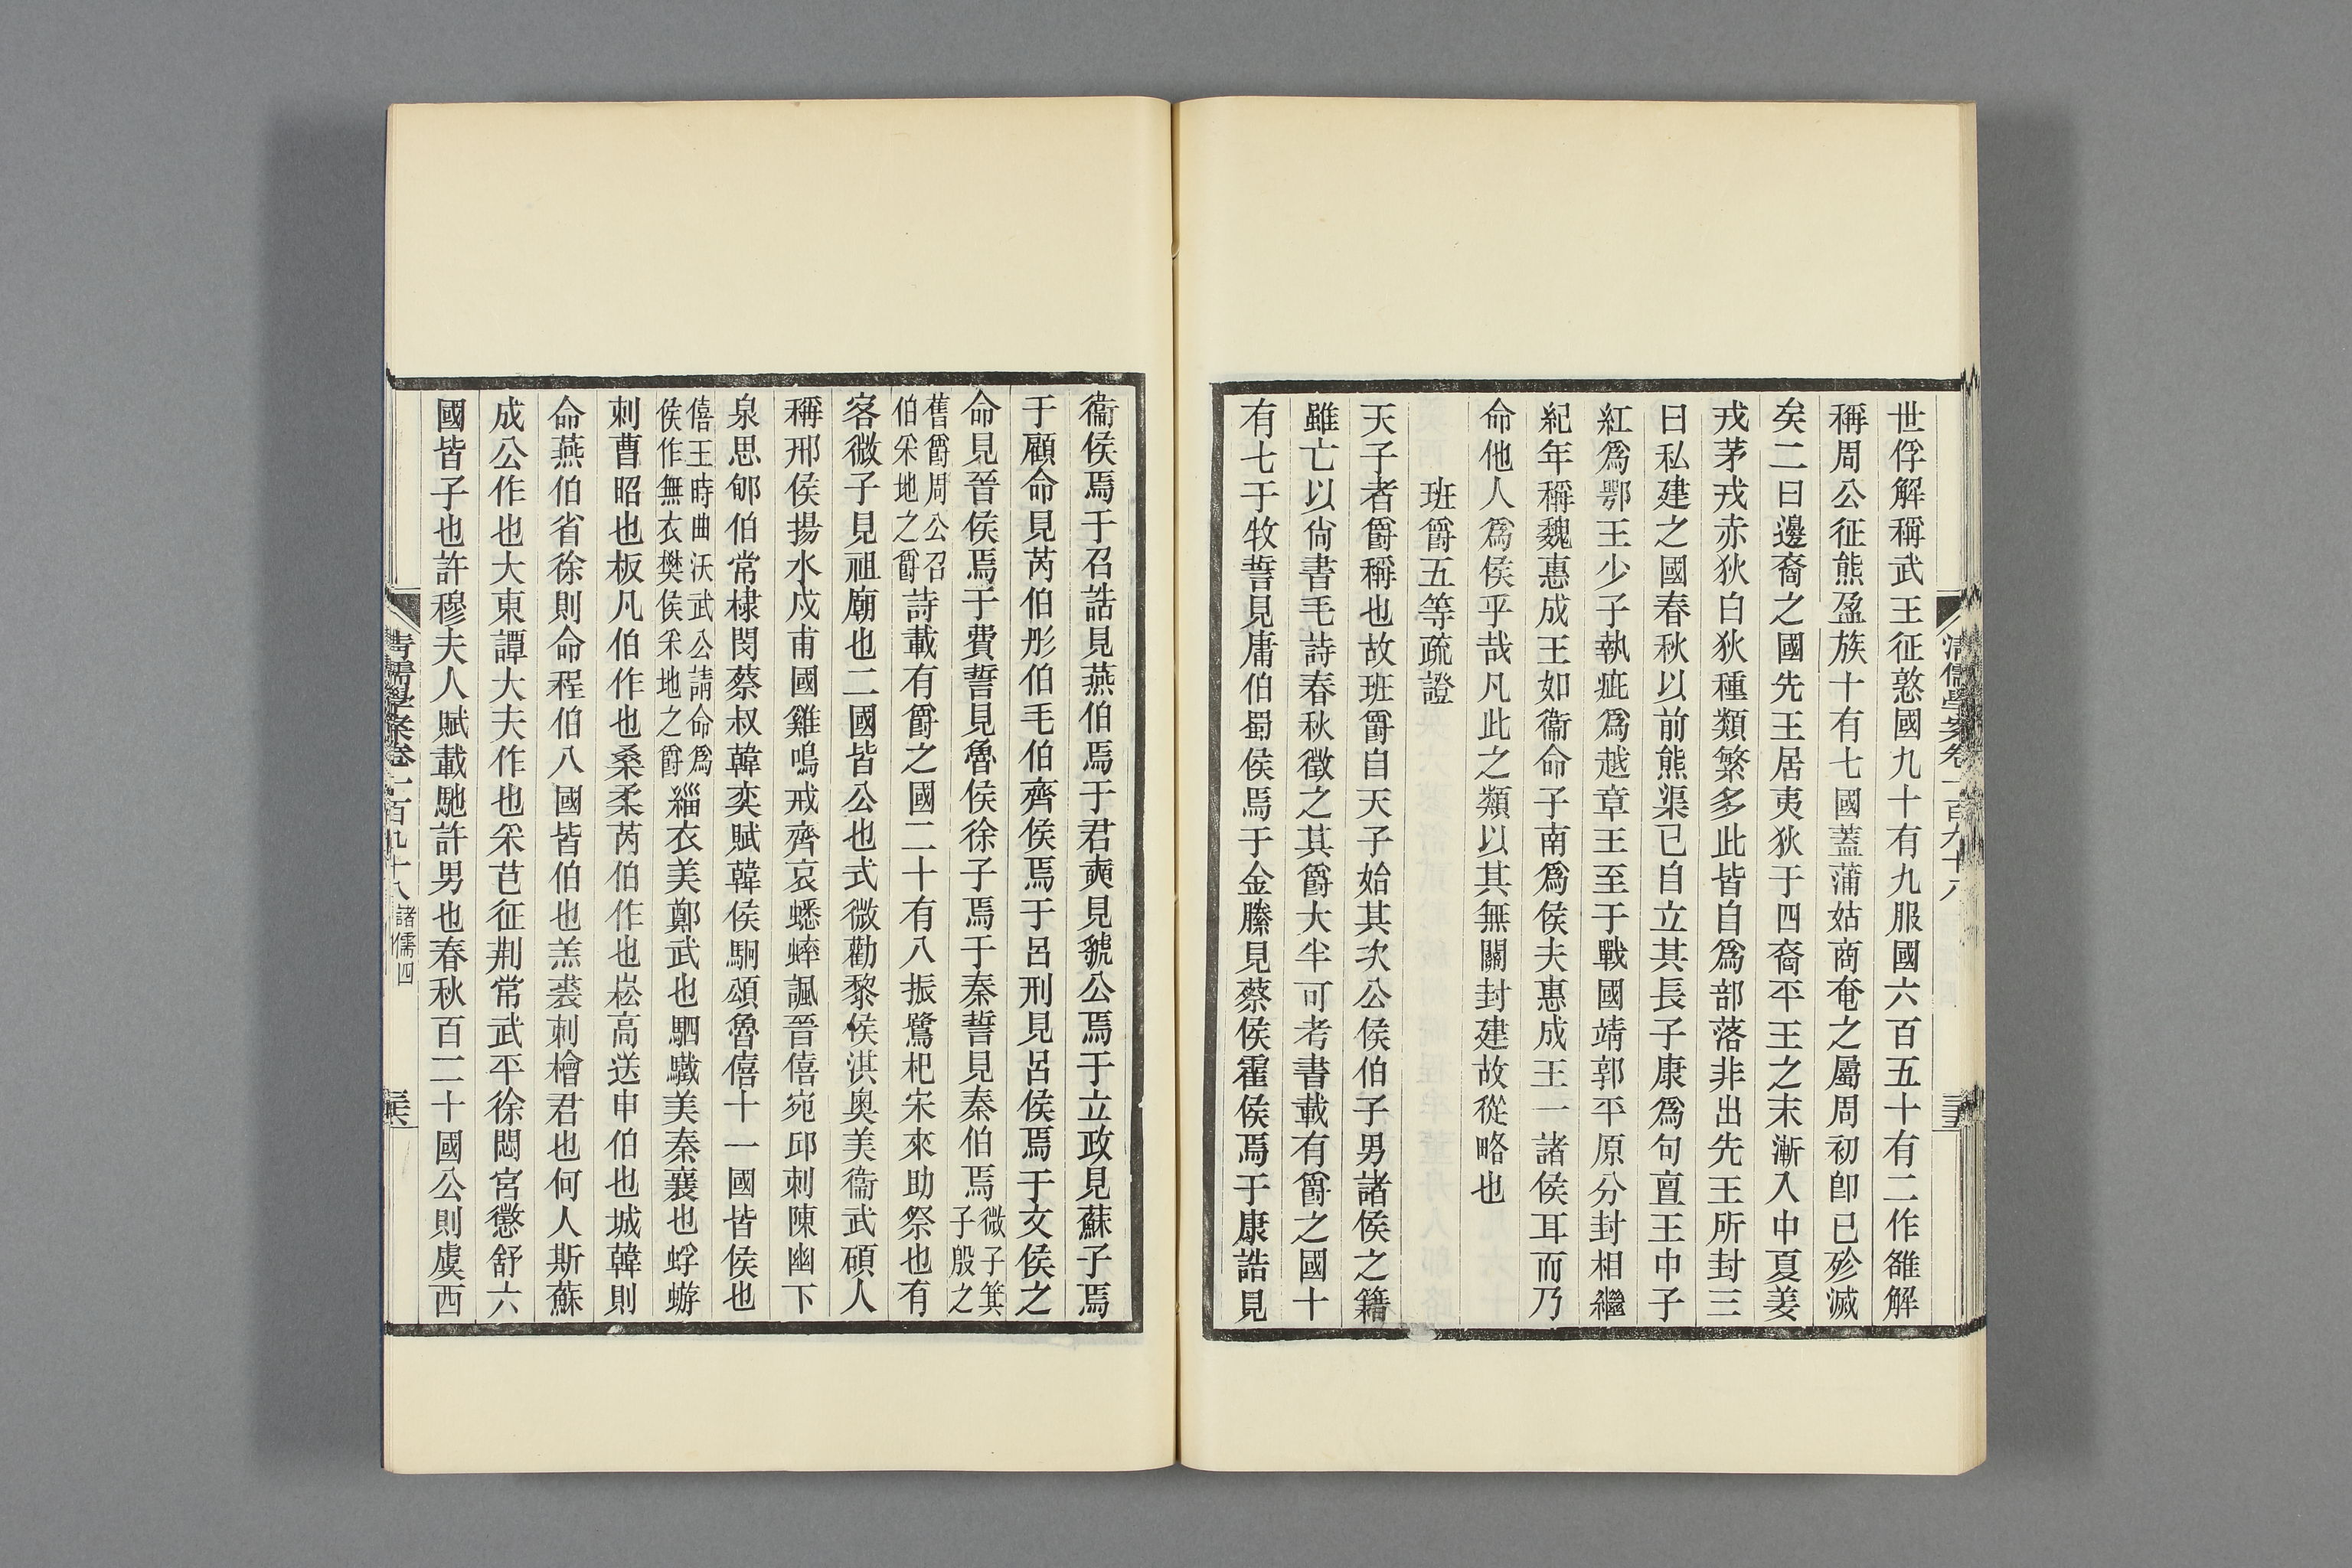 世俘解稱武王征憝國九十有九服國六百五十有二作雒解
稱周公征熊盈族十有七國蓋蒲姑商奄之屬周初卽已殄滅
矣二曰邊裔之國先王居夷狄于四裔平王之末漸入中夏姜
戎茅戎赤狄白狄種類繁多此皆自爲部落非出先王所封三
曰私建之國春秋以前熊渠已自立其長子康爲句亶王中子
紅爲鄂王少子執疵爲越章王至于戰國靖郭平原分封相繼
紀年稱魏惠成王如衞命子南爲侯夫惠成王一諸侯耳而乃
命他人爲侯乎哉凡此之類以其無關封建故從略也
班爵五等疏證
天子者爵稱也故班爵自天子始其次公侯伯子男諸侯之籍
雖亡以尙書毛詩春秋徵之其爵大半可考書載有爵之國十
有七于牧誓見庸伯蜀侯焉于金縢見蔡侯霍侯焉于康誥見
清儒學案卷一百九十八
三五
衞侯焉于召誥見燕伯焉于君奭見虢公焉于立政見蘇子焉
于顧命見芮伯彤伯毛伯齊侯焉于呂刑見呂侯焉于文侯之
命見晉侯焉于費誓見魯侯徐子焉于秦誓見秦伯焉微子箕
子殷之
舊爵周公召
伯采地之爵詩載有爵之國二十有八振鷺杞宋來助祭也有
客微子見祖廟也二國皆公也式微勸黎侯淇奧美衞武碩人
稱邢侯揚水戍甫國雞鳴戒齊哀蟋蟀諷晉僖宛邱刺陳幽下
泉思郇伯常棣閔蔡叔韓奕賦韓侯駉頌魯僖十一國皆侯也
僖王時曲沃武公請命爲
侯作無衣樊侯采地之爵緇衣美鄭武也駟驖美秦襄也蜉蝣
刺曹昭也板凡伯作也桑柔芮伯作也崧高送申伯也城韓則
命燕伯省徐則命程伯八國皆伯也羔裘刺檜君也何人斯蘇
成公作也大東譚大夫作也采芑征荆常武平徐閟宮懲舒六
國皆子也許穆夫人賦載馳許男也春秋百二十國公則虞西
清儒學案卷一百九十八 諸儒四
三六